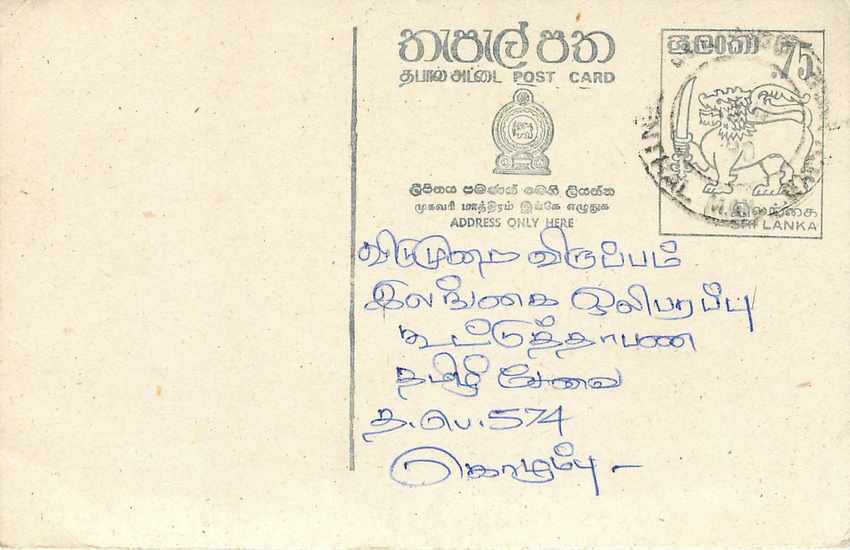 තැපැල් පත
தபால் அட்டை POST CARD
ශ්‍රී ලංකා
75
ලිපිනය පමණක් මෙහි ලියන්න
முகவரி மாத்திரம் இங்கே எழுதுக
ADDRESS ONLY HERE
இலங்கை
SRI LANKA
விடுமுறை விருப்பம்
இலங்கை ஒலிபரப்பு
கூட்டுத்தாபண
தமிழ் சேவை
த.பெ.574
கொழும்பு -